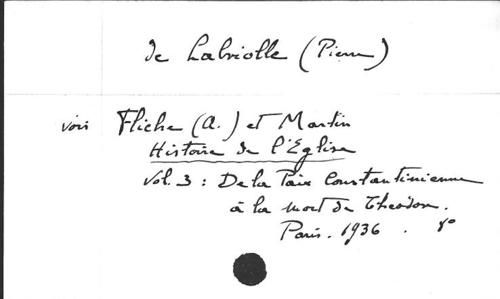 de Labriolle (Pierre)
voir Fliche (A.) et Martin
Histoire de l'Eglise
Vol. 3 : De la Paix Constantinienne
à la mort de Theodose.
Paris. 1936. 8°